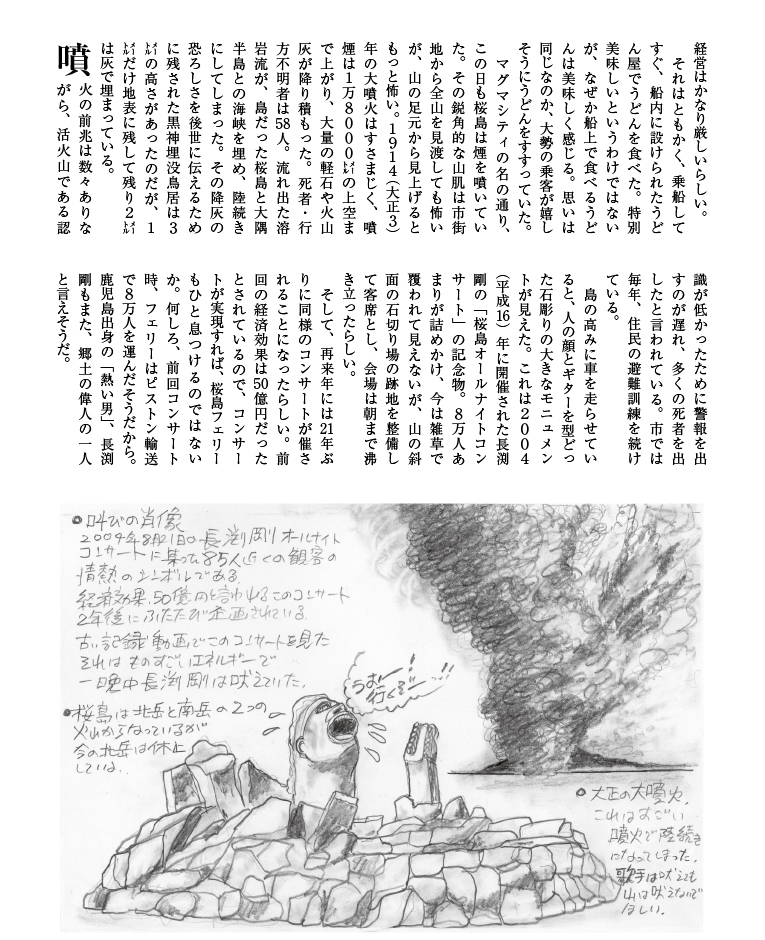 経営はかなり厳しいらしい。
それはともかく、乗船して
すぐ、船内に設けられたうど
ん屋でうどんを食べた。特別
美味しいというわけではない
が、なぜか船上で食べるうど
んは美味しく感じる。思いは
同じなのか、大勢の乗客が嬉し
そうにうどんをすすっていた。
マグマシティの名の通り、
この日も桜島は煙を噴いてい
た。その鋭角的な山肌は市街
地から全山を見渡しても怖い
が、山の足元から見上げると
もっと怖い。1914(大正3)
年の大噴火はすさまじく、噴
煙は1万8000㍍の上空ま
で上がり、大量の軽石や火山
灰が降り積もった。死者・行
方不明者は58人。流れ出た溶
岩流が、島だった桜島と大隅
半島との海峡を埋め、陸続き
にしてしまった。その降灰の
恐ろしさを後世に伝えるため
に残された黒神埋没鳥居は3
㍍の高さがあったのだが、1
㍍だけ地表に残して残り2㍍
は灰で埋まっている。
噴火の前兆は数々ありな
がら、活火山である認
識が低かったために警報を出
すのが遅れ、多くの死者を出
したと言われている。市では
毎年、住民の避難訓練を続け
ている。
島の高みに車を走らせてい
ると、人の顔とギターを型どっ
た石彫りの大きなモニュメン
トが見えた。これは2004
(平成16)年に開催された長渕
剛の「桜島オールナイトコン
サート」の記念物。8万人あ
まりが詰めかけ、今は雑草で
覆われて見えないが、山の斜
面の石切り場の跡地を整備し
て客席とし、会場は朝まで沸
き立ったらしい。
そして、再来年には21年ぶ
りに同様のコンサートが催さ
れることになったらしい。前
回の経済効果は50億円だった
とされているので、コンサー
トが実現すれば、桜島フェリー
もひと息つけるのではない
か。何しろ、前回コンサート
時、フェリーはピストン輸送
で8万人を運んだそうだから。
鹿児島出身の「熱い男」、長渕
剛もまた、郷土の偉人の一人
と言えそうだ。
叫びの肖像
2004年8月21日の長渕剛オールナイト
コンサートに集った8万人近くの観客の
情熱のシンボルである.
経済効果、50億円と言われるこのコンサート
2年後にふたたび企画されている.
古い記録動画でこのコンサートを見た
それはものすごいエネルギーで
一晩中長渕剛は吠えていた.
桜島は北岳と南岳の2つの
火山からなっているが
今の北岳は休止
している.
うおー!
行くぞー!!
大正の大噴火.
これはすごい
噴火で陸続き
になってしまった.
歌手は吠えても
山は吠えないで
ほしい.